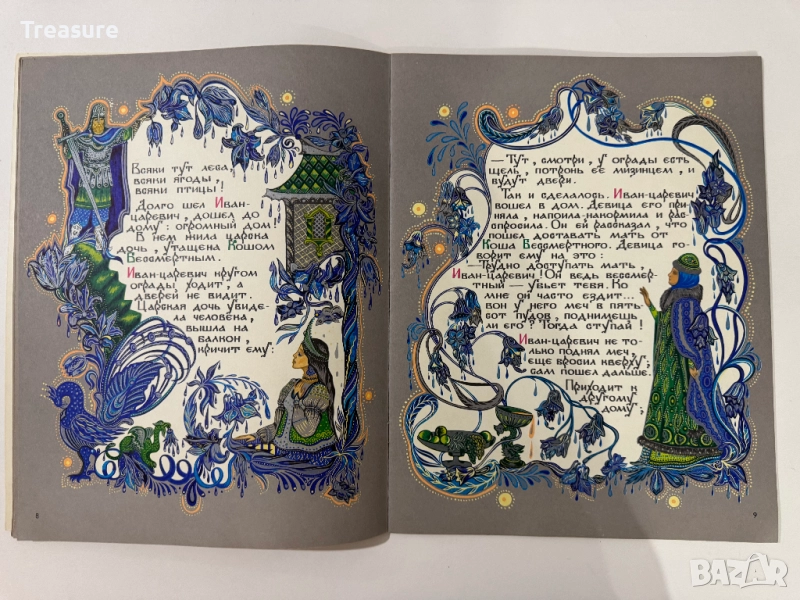 Treasure
Всяки тут леса,
всяни ягоды,
всяки птицы!
Долго шел Иван-
царевич, дошел до
дому: огромный дом!
В нем жила царска
дочь, утащена Кошом
Бессмертным.
Иван-царевич кругом
ограды ходит, а
дверей не видит.
Царская дочь увиде-
ла человека,
вышла на
балкон,
кричит ему:
8
— Тут, смотри, у ограды есть
щель, потронь ее мизинцем, и
будут двери.
Так и сделалось. Иван-царевич
вошел в дом. Девица его при-
няла, напоила-накормила и рас-
спросила. Он ей рассказал, что
пошел доставать мать от
Коша Бессмертного. Девица го-
ворит ему на это:
— Трудно доступать мать,
Иван-царевич! Он ведь бессмер-
тный — убьет тебя. Ко
мне он часто ездит...
вон у него меч в пять-
сот пудов, поднимешь
ли его? Тогда ступай!
Иван-царевич не то-
лько поднял меч,
еще бросил кверху;
сам пошел дальше.
Приходит к
другому
дому;
9
BAZAR